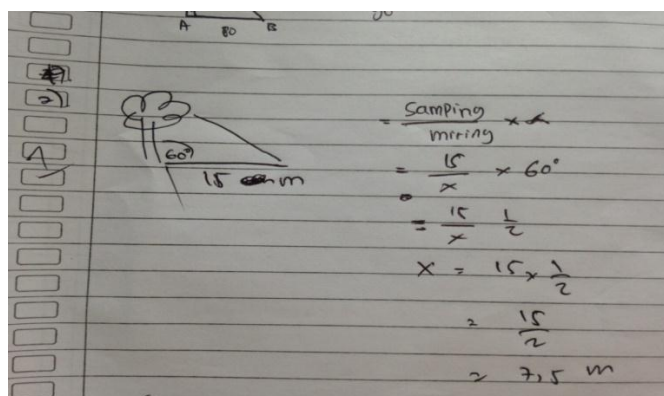 A 80 B
2)
60°
15 m
= samping / miring × α
= 15 / x × 60°
= 15 / x 1 / 2
x = 15 × 1 / 2
= 15 / 2
= 7,5 m